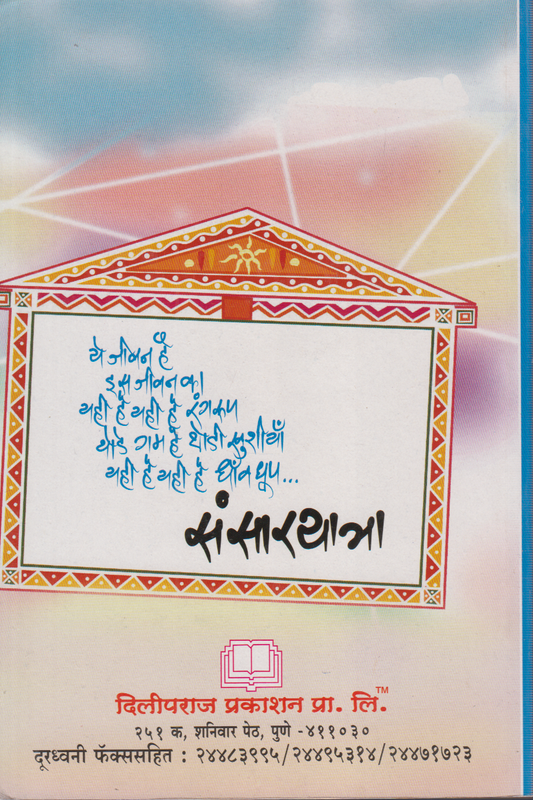 ये जीवन है
इस जीवन का
यही है यही है रंगरूप
थोडे गम है थोडी खुशीयाँ
यही है यही है छाँव धूप...
संसारयात्रा
दिलीपराज प्रकाशन प्रा. लि.™
२५१ क, शनिवार पेठ, पुणे -४११०३०
दूरध्वनी फॅक्ससहित : २४४८३९९५/२४४९५३१४/२४४७१७२३